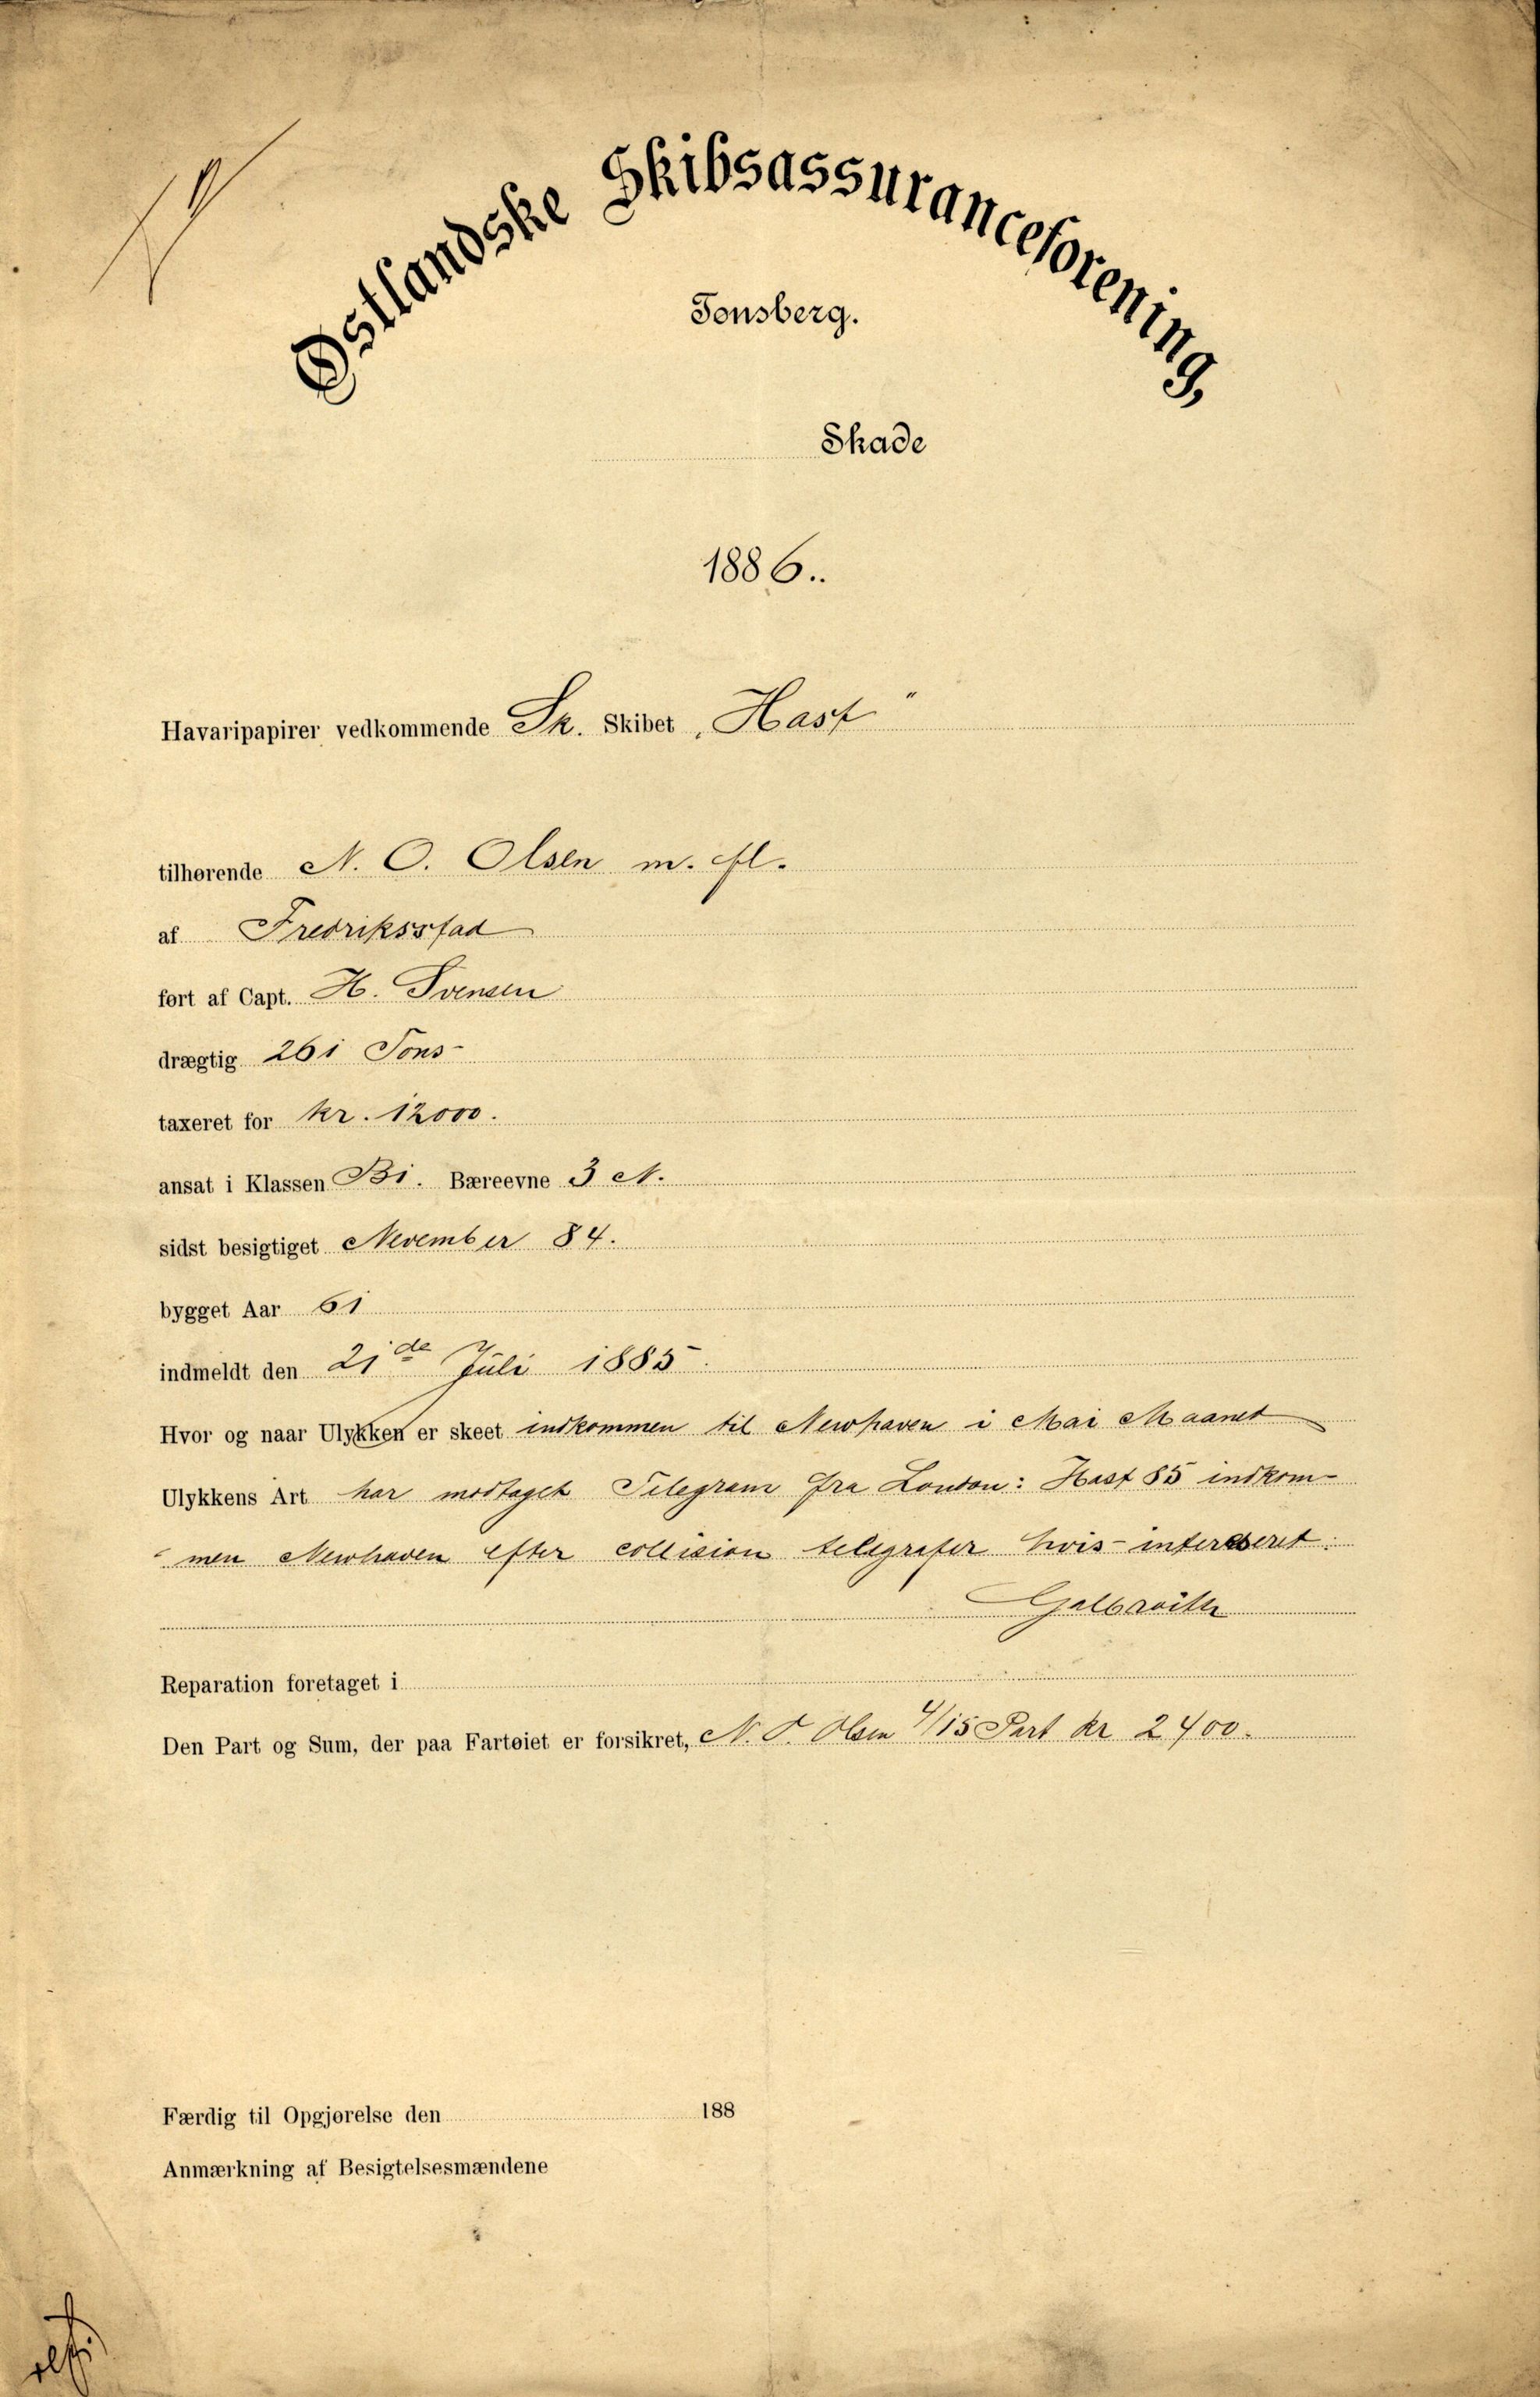 Østlandske Skibsassuranceforening,
Tønsberg.
Skade
1886..
Havaripapirer vedkommende Sk. Skibet „Hast"
tilhørende N. O. Olsen m. fl.
af Fredriksstad
ført af Capt. H. Svensen
drægtig 261 Tons
taxeret for kr. 12000.
ansat i Klassen B1. Bæreevne 3 N.
sidst besigtiget November 84.
bygget Aar 61
indmeldt den 21de Juli 1885.
Hvor og naar Ulykken er skeet indkommen til Newhaven i Mai Maaned
Ulykkens Art har modtaget Telegram fra London: Hast 85 indkom-
men Newhaven efter collision telegrafer hvis interesseret.
Galbraith
Reparation foretaget i
Den Part og Sum, der paa Fartøiet er forsikret, N. O. Olsen 4/15 Part kr 2400.
Færdig til Opgjørelse den 188
Anmærkning af Besigtelsesmændene